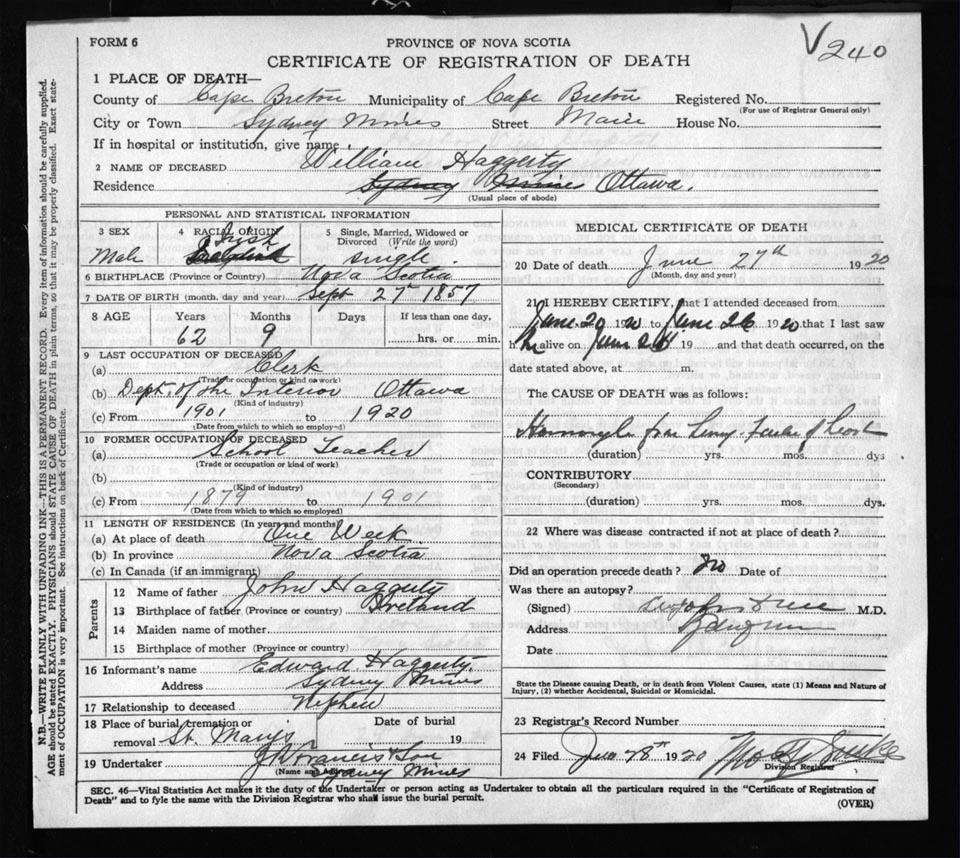 V 240
FORM 6
PROVINCE OF NOVA SCOTIA
CERTIFICATE OF REGISTRATION OF DEATH
1 PLACE OF DEATH—
County of Cape Breton Municipality of Cape Breton Registered No.
(For use of Registrar General only)
City or Town Sydney Mines Street Main House No.
If in hospital or institution, give name
2 NAME OF DECEASED William Haggerty
Residence Sydney Mines Ottawa.
(Usual place of abode)
PERSONAL AND STATISTICAL INFORMATION
3 SEX 4 RACIAL ORIGIN 5 Single, Married, Widowed or Divorced (Write the word)
Male Irish single.
6 BIRTHPLACE (Province or Country) Nova Scotia
7 DATE OF BIRTH (month, day and year) Sept 27th 1857
8 AGE Years Months Days If less than one day,
62 9 hrs. or min.
9 LAST OCCUPATION OF DECEASED
(a) Clerk
(Trade or occupation or kind of work)
(b) Dept. of the Interior Ottawa
(Kind of industry)
(c) From 1901 to 1920
(Date from which to which so employed)
10 FORMER OCCUPATION OF DECEASED
(a) School Teacher
(Trade or occupation or kind of work)
(b)
(Kind of industry)
(c) From 1879 to 1901
(Date from which to which so employed)
11 LENGTH OF RESIDENCE (In years and months)
(a) At place of death One Week
(b) In province Nova Scotia
(c) In Canada (if an immigrant)
Parents
12 Name of father John Haggerty
13 Birthplace of father (Province or country) Ireland
14 Maiden name of mother
15 Birthplace of mother (Province or country)
16 Informant's name Edward Haggerty.
Address Sydney Mines
17 Relationship to deceased Nephew
18 Place of burial, cremation or removal St. Marys Date of burial 19
19 Undertaker J W Francis & Son
(Name and address) Sydney Mines
MEDICAL CERTIFICATE OF DEATH
20 Date of death June 27th 1920
(Month, day and year)
21 I HEREBY CERTIFY, that I attended deceased from
June 20 1920 to June 26 1920 that I last saw
him alive on June 19 and that death occurred, on the
date stated above, at m.
The CAUSE OF DEATH was as follows:
(duration) yrs. mos. dys
CONTRIBUTORY
(Secondary)
(duration) yrs. mos. dys.
22 Where was disease contracted if not at place of death?
Did an operation precede death? No Date of
Was there an autopsy?
(Signed) M.D.
Address
Date
State the Disease causing Death, or in death from Violent Causes, state (1) Means and Nature of
Injury, (2) whether Accidental, Suicidal or Homicidal.
23 Registrar's Record Number
24 Filed June 28th 1920
Division Registrar
SEC. 46—Vital Statistics Act makes it the duty of the Undertaker or person acting as Undertaker to obtain all the particulars required in the "Certificate of Registration of
Death" and to fyle the same with the Division Registrar who shall issue the burial permit.
(OVER)
N.B.—WRITE PLAINLY WITH UNFADING INK—THIS IS A PERMANENT RECORD. Every item of information should be carefully supplied.
AGE should be stated EXACTLY. PHYSICIANS should STATE CAUSE OF DEATH in plain terms, so that it may be properly classified. Exact state-
ment of OCCUPATION is very important. See instructions on back of Certificate.